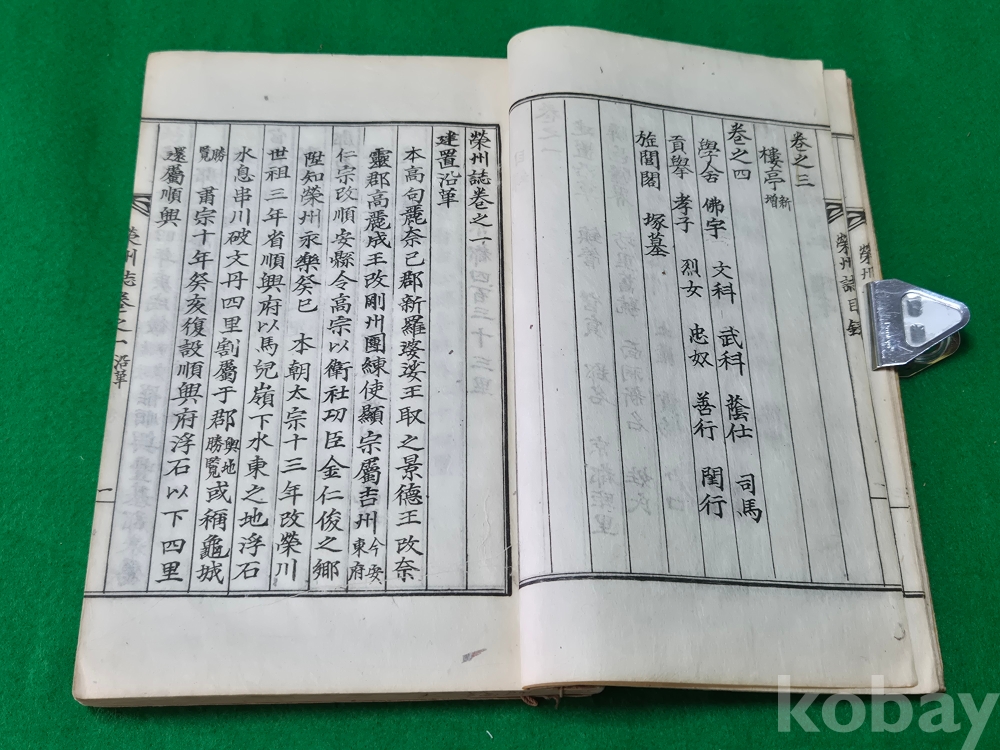 卷之三
樓亭 新增
卷之四
學舍 佛宇 文科 武科 蔭仕 司馬
貢擧 孝子 烈女 忠奴 善行 閨行
旌閭閣 塚墓
榮州誌目錄
榮州誌卷之一
建置沿革
本高句麗奈已郡新羅婆娑王取之景德王改奈
靈郡高麗成王改剛州團練使顯宗屬吉州今安東府
仁宗改順安縣令高宗以衛社功臣金仁俊之鄉
陞知榮州永樂癸巳 本朝太宗十三年改榮川
世祖三年省順興府以馬兒嶺下水東之地浮石
水息串川破文丹四里割屬于郡輿地勝覽或稱龜城
勝覽 肅宗十年癸亥復設順興府浮石以下四里
還屬順興
榮州誌卷之一 沿革 一
kobay